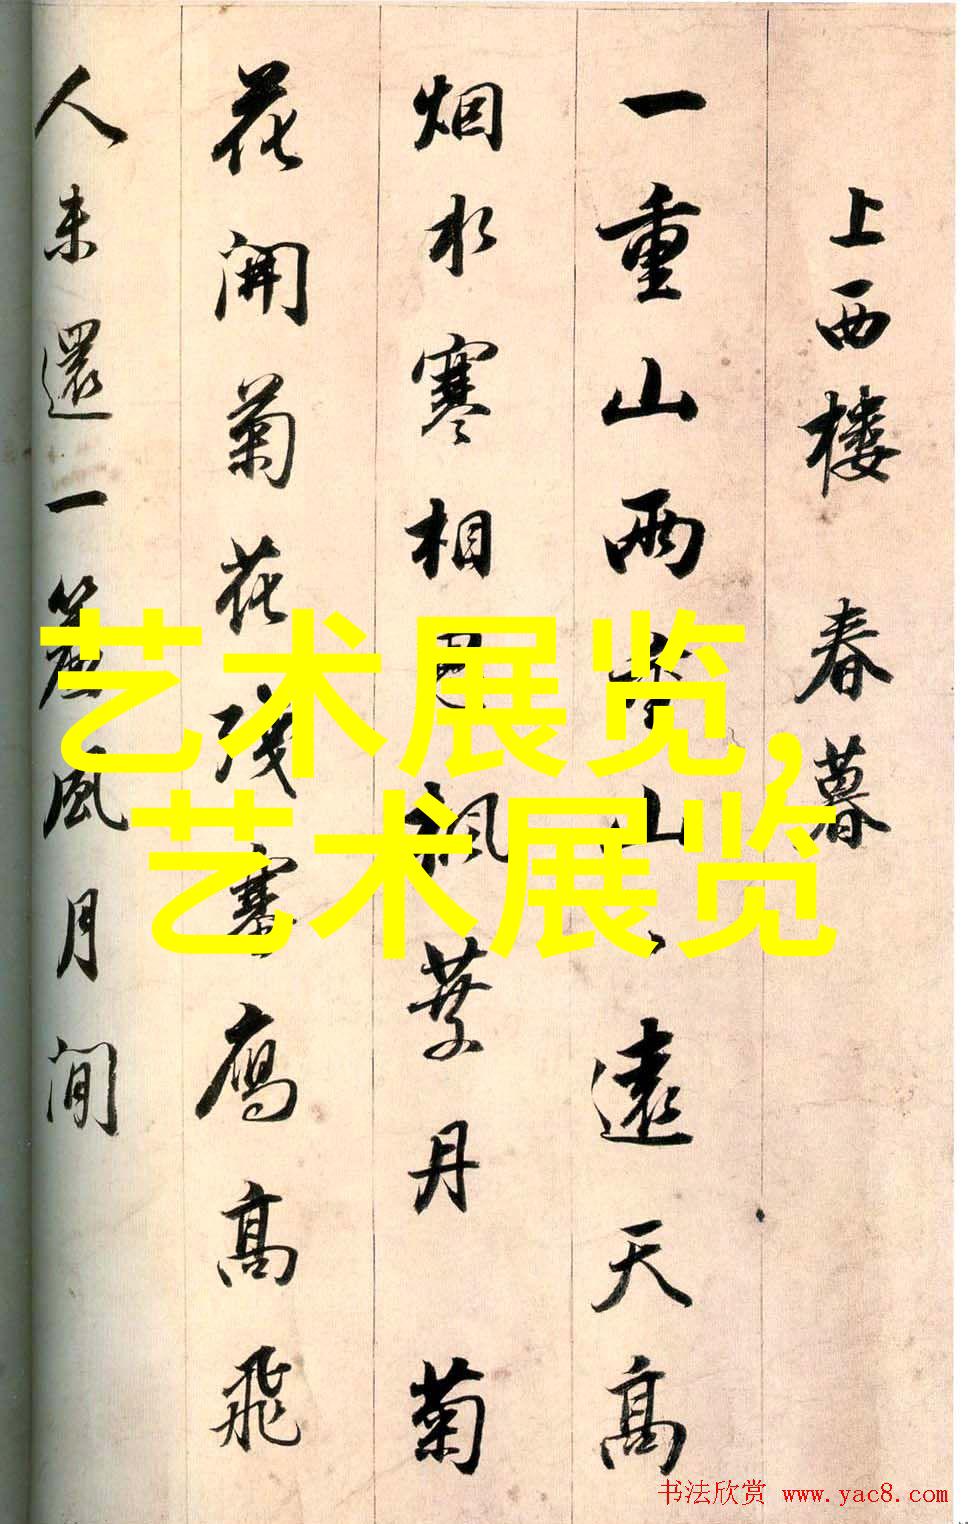 上西楼 春暮
一重山兩重山、遠天高
烟水寒相思楓葉丹 菊
花開菊花殘塞鴈高飛
人未還一簾風月閒
艺术展览,
艺术展览
书法欣赏 www.yac8.com